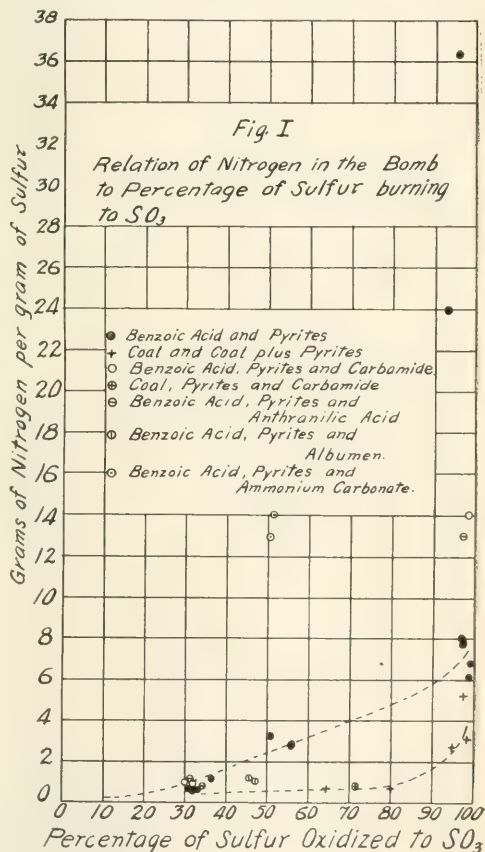 38
36
34
32
30
28
26
24
22
20
18
16
14
12
10
8
6
4
2
0
Grams of Nitrogen per gram of Sulfur
Fig. I
Relation of Nitrogen in the Bomb
to Percentage of Sulfur burning
to SO₃
Benzoic Acid and Pyrites
Coal and Coal plus Pyrites
Benzoic Acid, Pyrites and Carbamide
Coal, Pyrites and Carbamide
Benzoic Acid, Pyrites and
Anthranilic Acid
Benzoic Acid, Pyrites and
Albumen.
Benzoic Acid, Pyrites and
Ammonium Carbonate.
0 10 20 30 40 50 60 70 80 90 100
Percentage of Sulfur Oxidized to SO₃